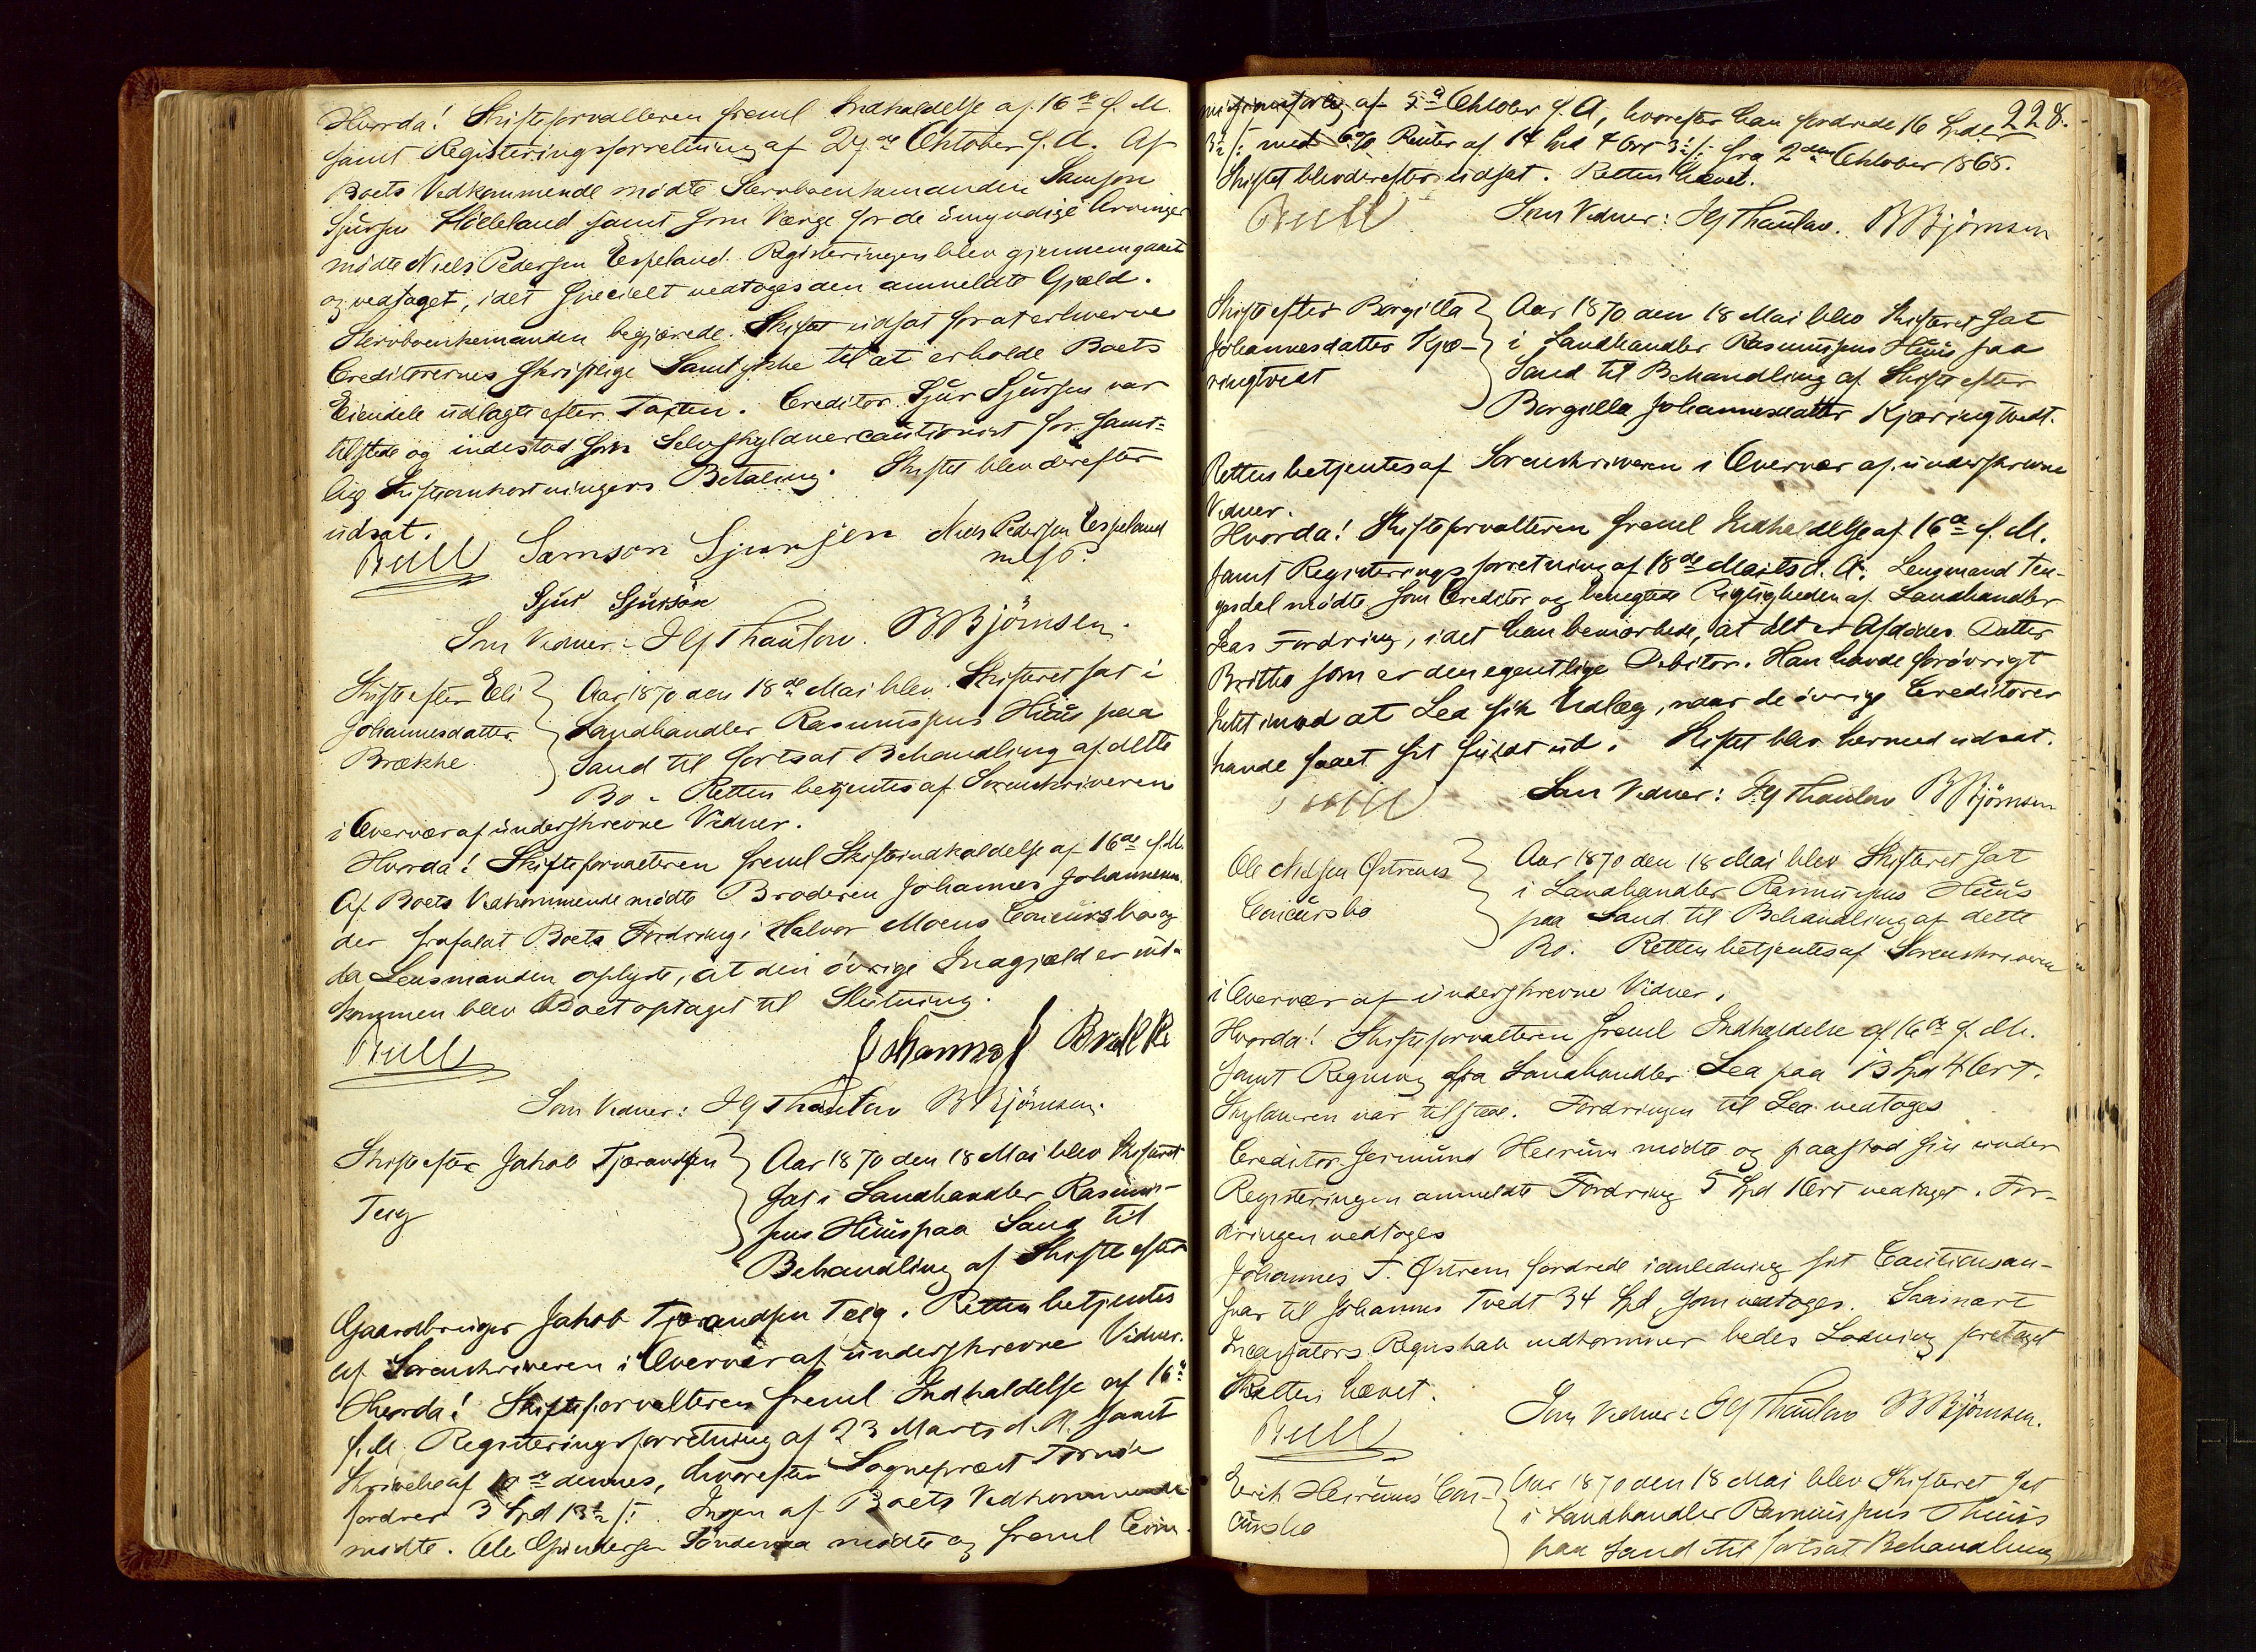 Hvorda! Skifteforvalteren freml Indkaldelse af 16de f. M.
samt Registeringsforretning af 27de Oktober f. A. Af
Boets Vedkommende mødte Stervboenkemanden Samson
Sjursen Høieland samt som Værge for de umyndige Arvinger
mødte Niels Pedersen Espeland. Registeringen blev gjennemgaaet
og vedtaget, idet specielt vedtoges den anmeldte Gjæld.
Stervboenkemanden begjærede Skiftet udsat for at erhverve
Creditorernes skriftlige Samtykke til at erholde Boets
Eiendele udlagte efter Taxten. Creditor Sjur Sjursen var
tilstede og indestod som Selvskyldnercautionist for samt-
lige Skifteomkostningers Betaling. Skiftet blev derefter
udsat.
Bull Samson Sjursen Niels Pedersen Espeland
m. f. P.
Sjur Sjursön
Som Vidner: Thaulow. B Bjørnsen.
Skifte efter Eli
Johannesdatter
Brække
Aar 1870 den 18de Mai blev Skifteret sat i
Landhandler Rasmussens Huus paa
Sand til fortsat Behandling af dette
Bo. Retten betjentes af Sorenskriveren
i Overvær af underskrevne Vidner.
Hvorda! Skifteforvalteren freml Skifteindkaldelse af 16de f. M.
Af Boets Vedkommende mødte Broderen Johannes Johannesen
der frafalt Boets Fordring i Halvor Moens Concursbo og
da Lensmanden oplyste, at den øvrige Inagjæld er ind-
kommen blev Boet optaget til Slutning.
Bull Johannes J Brække
Som Vidner: Thaulow B Bjørnsen.
Skifte efter Jakob Tjerandsen
Teig
Aar 1870 den 18 Mai blev Skifteret
sat i Landhandler Rasmus-
sens Huus paa Sand til
Behandling af Skifte efter
Gaardbruger Jakob Tjerandsen Teig. Retten betjentes
af Sorenskriveren i Overvær af underskrevne Vidner.
Hvorda! Skifteforvalteren freml Indkaldelse af 16de
f. M. Registeringsforretning af 23 Marts d. A. samt
Skrivelse af 10de dennes, hvorefter Sogneprest Tornøe
fordrer 3 Spd 13½ ß. Ingen af Boets Vedkommende
mødte. Ole Gundersen Søndenaa mødte og freml
228.
af 5te Oktober f. A, hvorefter han fordrede 16 Spd
3½ ß med 6% Renter af 14 Spd 4 Ort 3½ ß fra 2den Oktober 1868.
Skiftet blev derefter udsat. Retten hævet.
Bull Som Vidner: Thaulow. B Bjørnsen
Skifte efter Borgilla
Johannesdatter Kjæ-
ringtvedt
Aar 1870 den 18 Mai blev Skifteret sat
i Landhandler Rasmussens Huus paa
Sand til Behandling af Skifte efter
Borgilla Johannesdatter Kjæringtvedt.
Retten betjentes af Sorenskriveren i Overvær af underskrevne
Vidner.
Hvorda! Skifteforvalteren freml Indkaldelse af 16de f. M.
samt Registeringsforretning af 18de Marts d. A. Lensmand Ten-
gesdal mødte som Creditor og benegtede Rigtigheden af Landhandler
Leas Fordring, idet han bemærkede, at det er Afdødes Datter
Britha som er den egentlige Debitor. Han havde forøvrigt
Intet imod at Lea fik Udlæg, naar de øvrige Creditorer
havde faaet sit fuldt ud. Skiftet blev hermed udsat.
Bull Som Vidner: Thaulow B Bjørnsen
Ole Nilsen Østrems
Concursbo
Aar 1870 den 18 Mai blev Skifteret sat
i Landhandler Rasmussens Huus
paa Sand til Behandling af dette
Bo. Retten betjentes af Sorenskriveren
i Overvær af underskrevne Vidner.
Hvorda! Skifteforvalteren freml Indkaldelse af 16de f. M.
samt Regning fra Landhandler Lea paa 13 Spd 4 Ort.
Skyldneren var tilstede. Fordringen til Lea vedtoges
Creditor Jermund Heirum mødte og paastod sin under
Registeringen anmeldte Fordring 5 Spd 1 Ort vedtaget. For-
dringen vedtoges
Johannes T. Østrem fordrede i anledning sit Cautionsan-
svar til Johannes Tvedt 34 Spd som vedtoges. Saasnart
Incassators Regnskab indkommer bedes Lodning foretaget
Retten hævet.
Bull Som Vidner: Thaulow B Bjørnsen.
Erik Heirums Con-
cursbo
Aar 1870 den 18 Mai blev Skifteret sat
i Landhandler Rasmussens Huus
paa Sand til fortsat Behandling